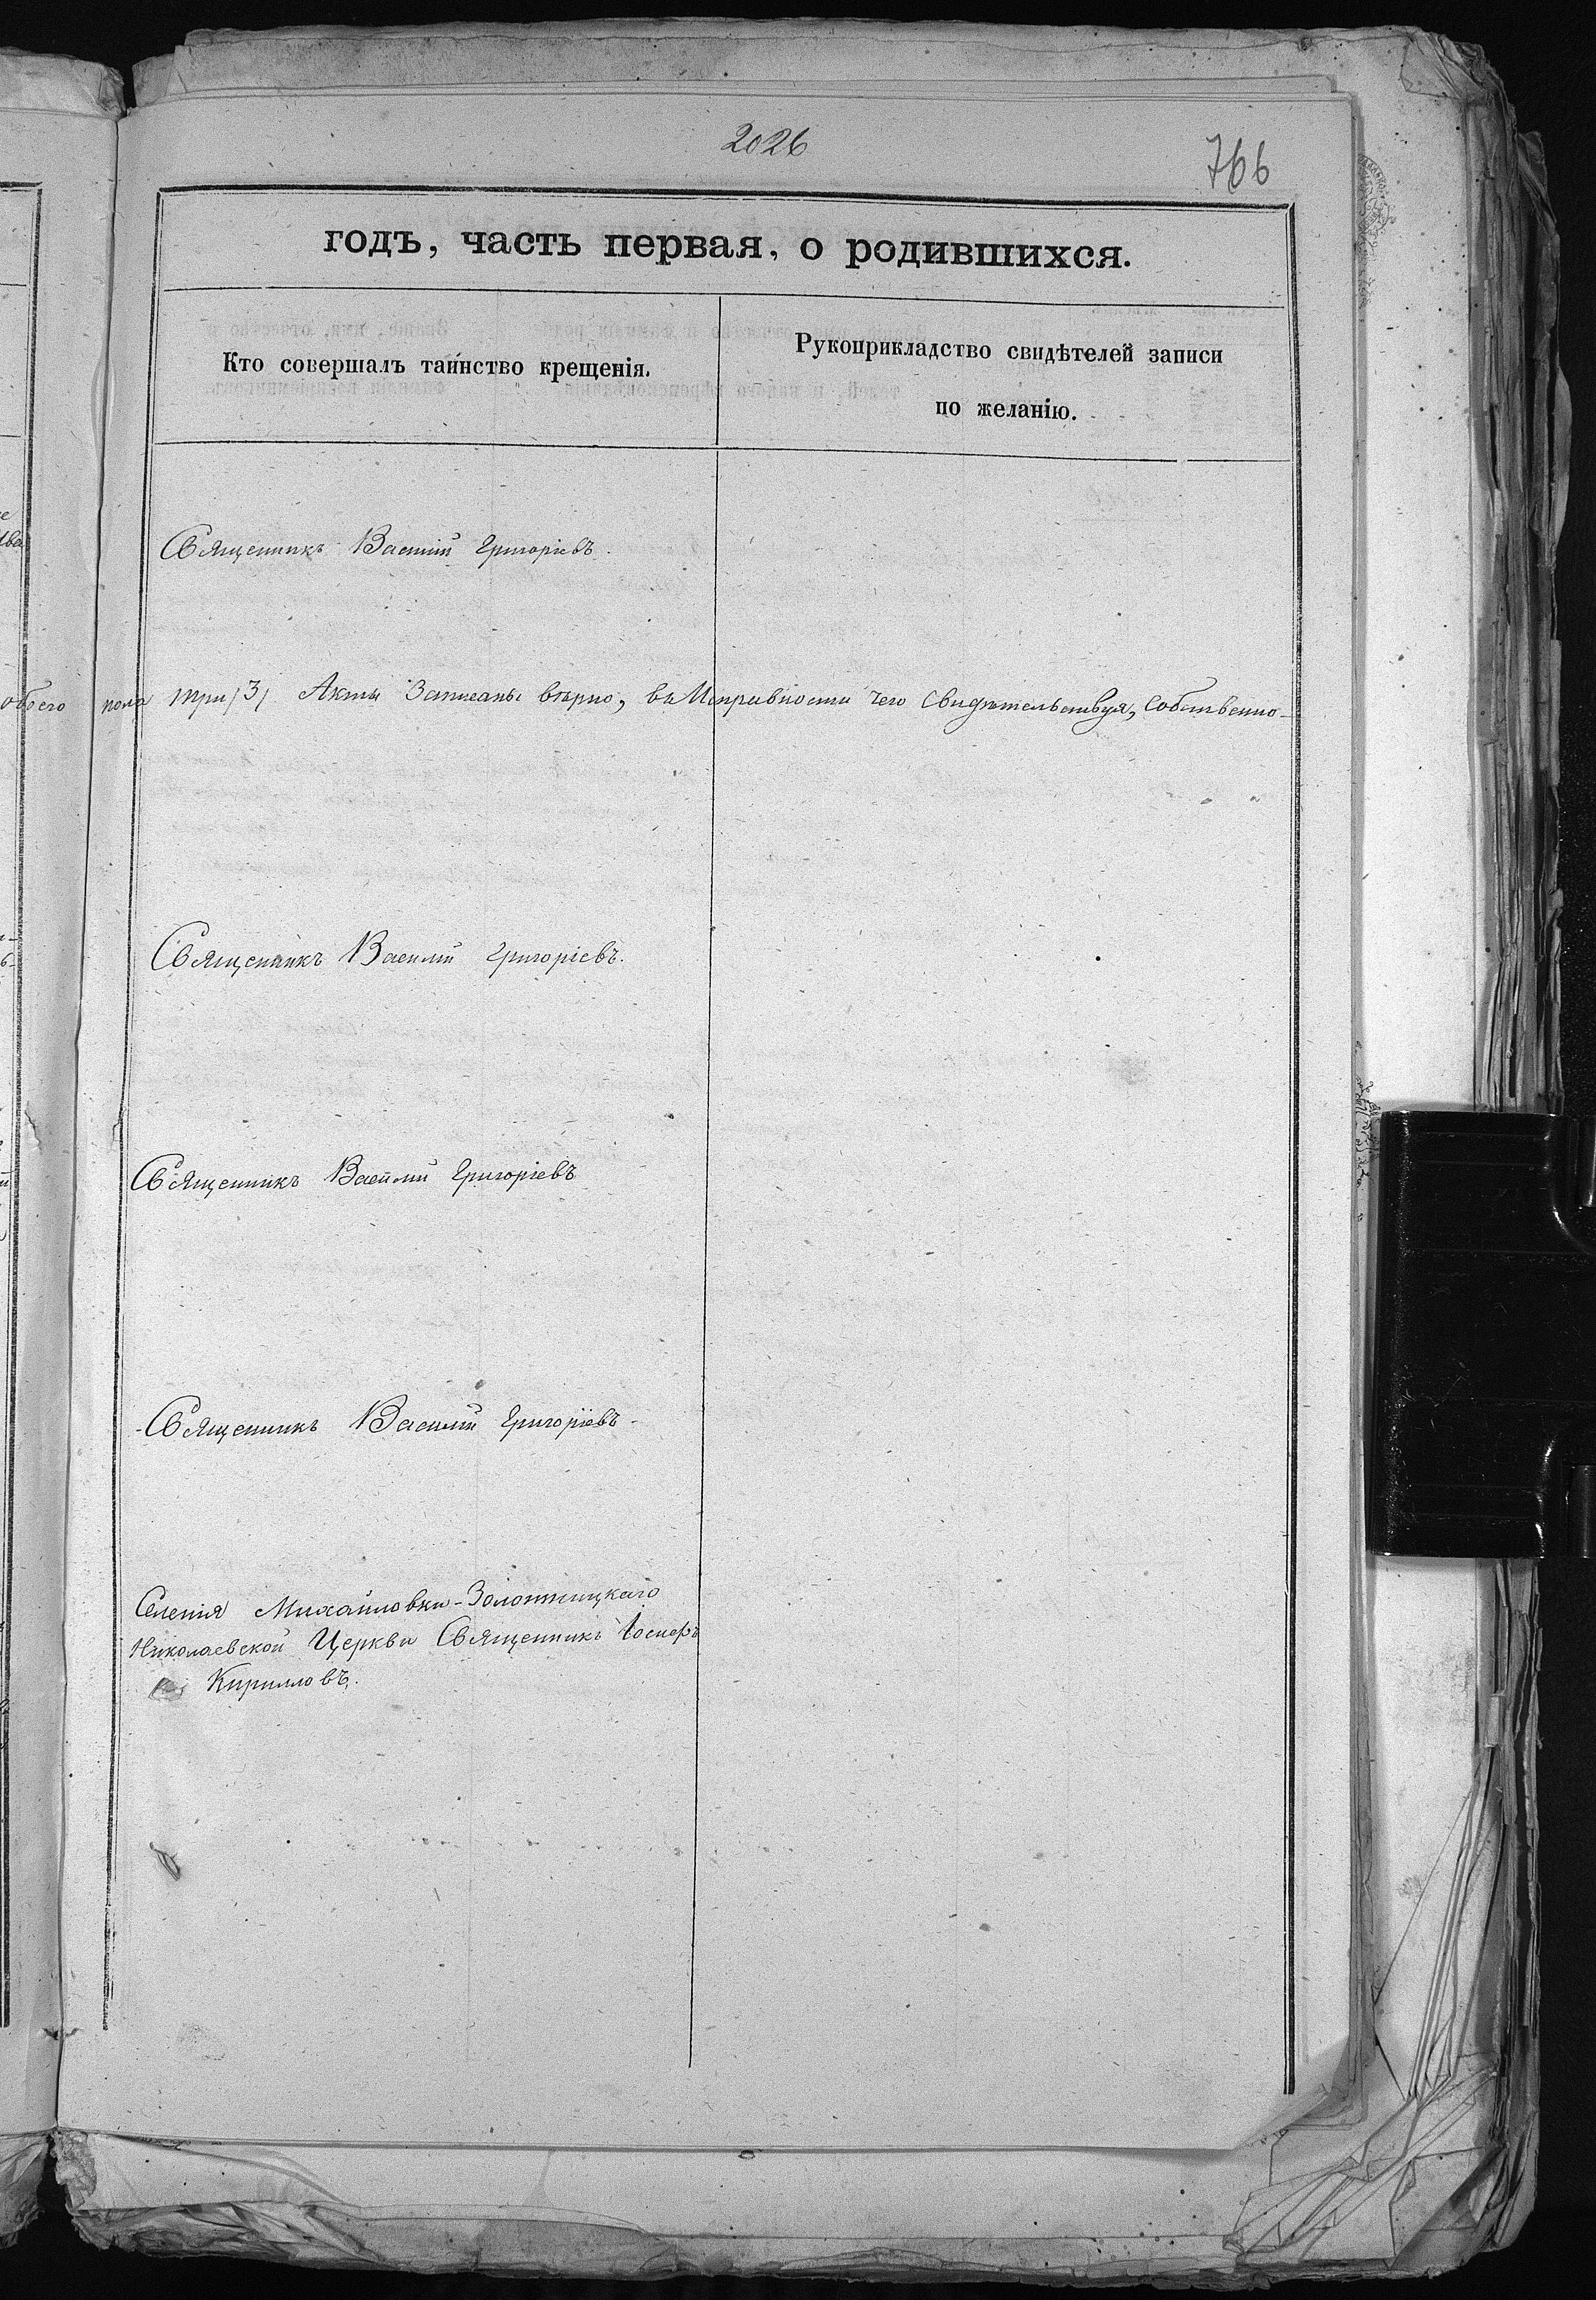 2026
766
годъ, часть первая, о родившихся.
Кто совершалъ таинство крещенія.
Рукоприкладство свидѣтелей записи
по желанію.
Священникъ Василій Григоріевъ.
обоего пола три /3/ Акты Записаны вѣрно, въ Исправности чего Свидѣтельствуя, Собственно-
Священникъ Василій Григоріевъ.
Священникъ Василій Григоріевъ
Священникъ Василій Григоріевъ
Селенія Михайловки-Золотницкаго
Николаевской Церкви Священникъ Іосифъ
Кирилловъ.